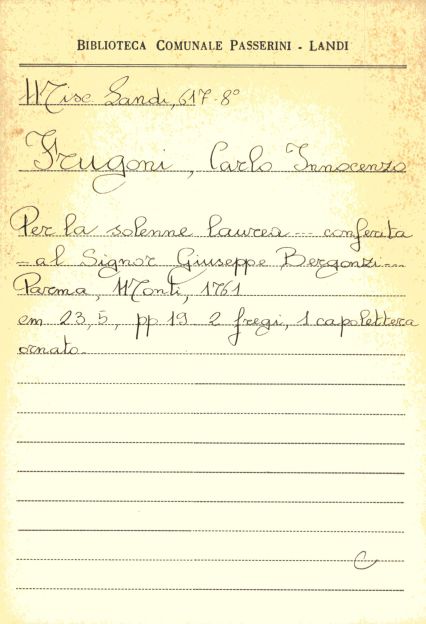 BIBLIOTECA COMUNALE PASSERINI - LANDI
Misc. Landi, 617. 8°
Frugoni, Carlo Innocenzo
Per la solenne laurea --- conferita
= al Signor Giuseppe Bergonzi ---
Parma, Monti, 1761
cm 23,5, pp 19 2 fregi, 1 capolettera
ornato.
C